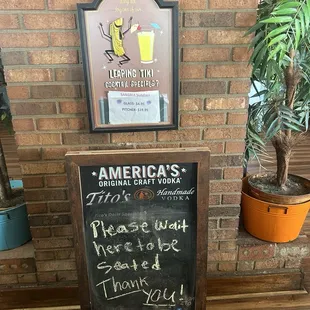 LEEPING TIKI
COCKTAIL SPECIALS
AMERICA'S
ORIGINAL CRAFT VODKA
Tito's Handmade
VODKA
Please wait
here to be
Seated
Thank
you!